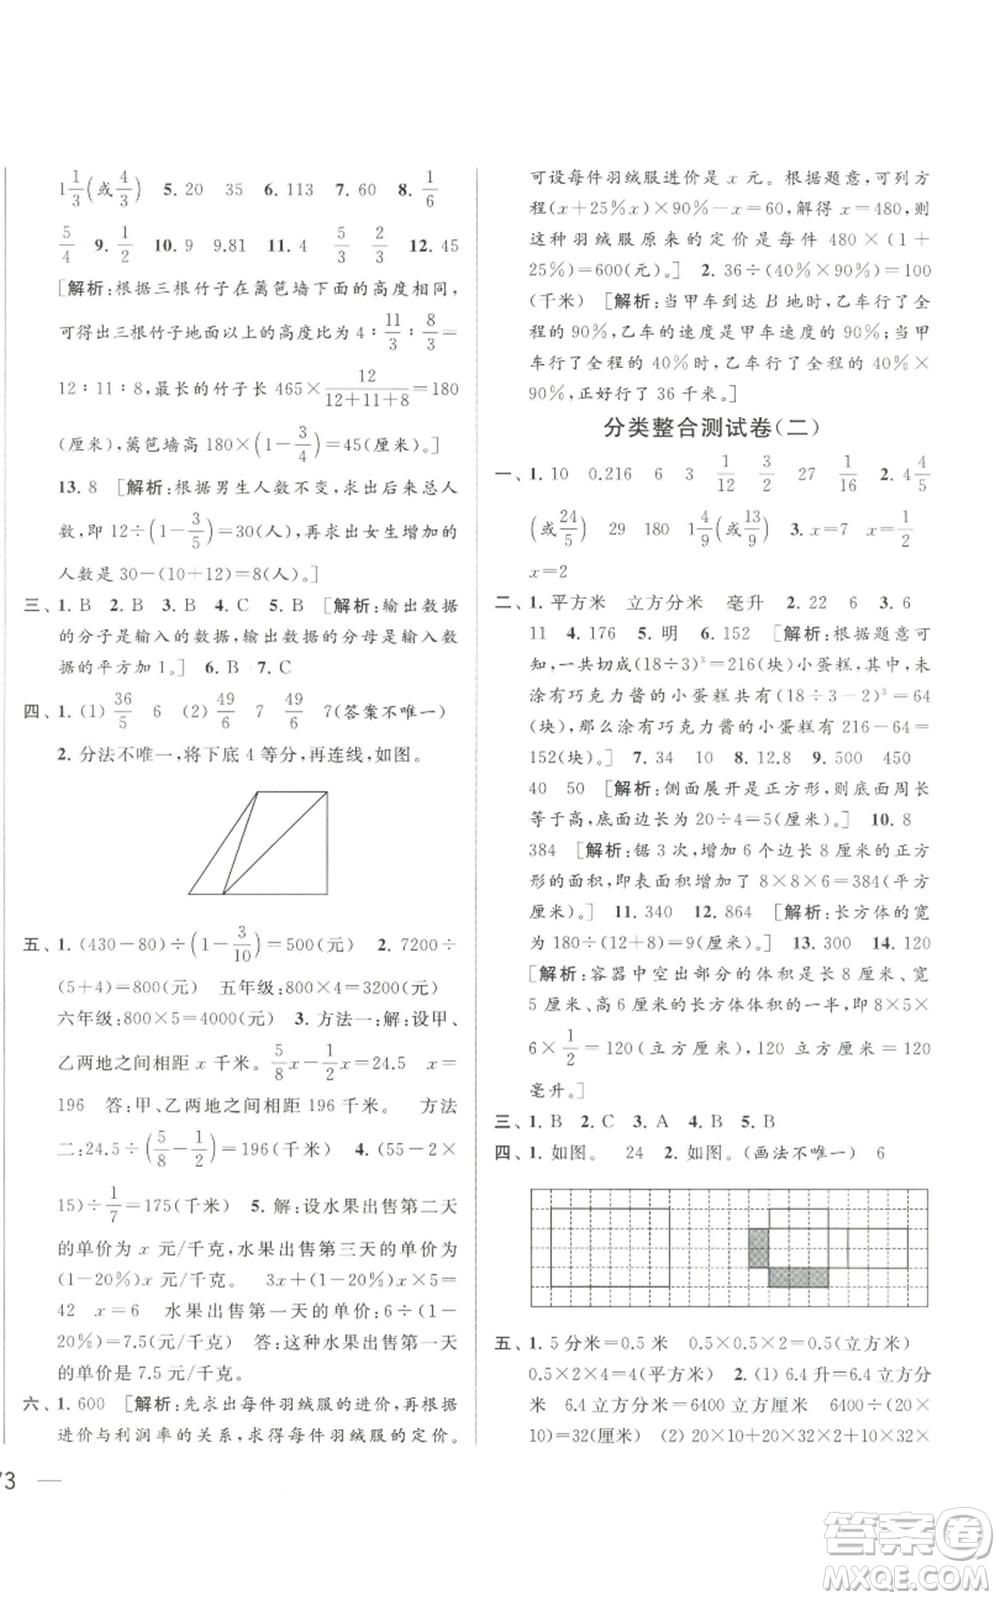 1 1/3(或4/3) 5. 20 35 6. 113 7. 60 8. 1/6
5/4 9. 1/2 10. 9 9.81 11. 4 5/3 2/3 12. 45
[解析:根据三根竹子在篱笆墙下面的高度相同,
可得出三根竹子地面以上的高度比为4∶11/3∶8/3=
12∶11∶8,最长的竹子长 465×12/(12+11+8)=180
(厘米),篱笆墙高 180×(1-3/4)=45(厘米)。]
13. 8 [解析:根据男生人数不变,求出后来总人
数,即 12÷(1-3/5)=30(人),再求出女生增加的
人数是 30-(10+12)=8(人)。]
三、1. B 2. B 3. B 4. C 5. B [解析:输出数据
的分子是输入的数据,输出数据的分母是输入数
据的平方加 1。] 6. B 7. C
四、1. (1) 36/5 6 (2) 49/6 7 49/6 7(答案不唯一)
2. 分法不唯一,将下底 4 等分,再连线,如图。
五、1. (430-80)÷(1-3/10)=500(元) 2. 7200÷
(5+4)=800(元) 五年级:800×4=3200(元)
六年级:800×5=4000(元) 3. 方法一:解:设甲、
乙两地之间相距 x 千米。5/8x-1/2x=24.5 x=
196 答:甲、乙两地之间相距 196 千米。 方法
二:24.5÷(5/8-1/2)=196(千米) 4. (55-2×
15)÷1/7=175(千米) 5. 解:设水果出售第二天
的单价为 x 元/千克,水果出售第三天的单价为
(1-20%)x 元/千克。 3x+(1-20%)x×5=
42 x=6 水果出售第一天的单价:6÷(1-
20%)=7.5(元/千克) 答:这种水果出售第一天
的单价是 7.5 元/千克。
六、1. 600 [解析:先求出每件羽绒服的进价,根据
进价与利润率的关系,求得每件羽绒服的定价。
73
可设每件羽绒服进价是 x 元。根据题意,可列方
程(x+25%x)×90%-x=60,解得 x=480,则
这种羽绒服原来的定价是每件 480×(1+
25%)=600(元)。] 2. 36÷(40%×90%)=100
(千米) [解析:当甲车到达 B 地时,乙车行了全
程的 90%,乙车的速度是甲车速度的 90%;当甲
车行了全程的 40%时,乙车行了全程的 40%×
90%,正好行了 36 千米。]
分类整合测试卷(二)
一、1. 10 0.216 6 3 1/12 3/2 27 1/16 2. 4 4/5
(或24/5) 29 180 1 4/9(或13/9) 3. x=7 x=1/2
x=2
二、1. 平方米 立方分米 毫升 2. 22 6 3. 6
11 4. 176 5. 明 6. 152 [解析:根据题意可
知,一共切成(18÷3)³=216(块)小蛋糕,其中,未
涂有巧克力酱的小蛋糕共有(18÷3-2)³=64
(块),那么涂有巧克力酱的小蛋糕有 216-64=
152(块)。] 7. 34 10 8. 12.8 9. 500 450
40 50 [解析:侧面展开是正方形,则底面周长
等于高,底面边长为 20÷4=5(厘米)。] 10. 8
384 [解析:锯 3 次,增加 6 个边长 8 厘米的正方
形的面积,即表面积增加了 8×8×6=384(平方
厘米)。] 11. 340 12. 864 [解析:长方体的宽
为 180÷(12+8)=9(厘米)。] 13. 300 14. 120
[解析:容器中空出部分的体积是长 8 厘米、宽
5 厘米、高 6 厘米的长方体体积的一半,即 8×5×
6×1/2=120(立方厘米),120 立方厘米=120
毫升。]
三、1. B 2. C 3. A 4. B 5. B
四、1. 如图。 24 2. 如图。(画法不唯一) 6
五、1. 5 分米=0.5 米 0.5×0.5×2=0.5(立方米)
0.5×2×4=4(平方米) 2. (1) 6.4 升=6.4 立方
分米 6.4 立方分米=6400 立方厘米 6400÷(20×
10)=32(厘米) (2) 20×10×2+20×32×2+10×32×
答案圈
MXQE.COM